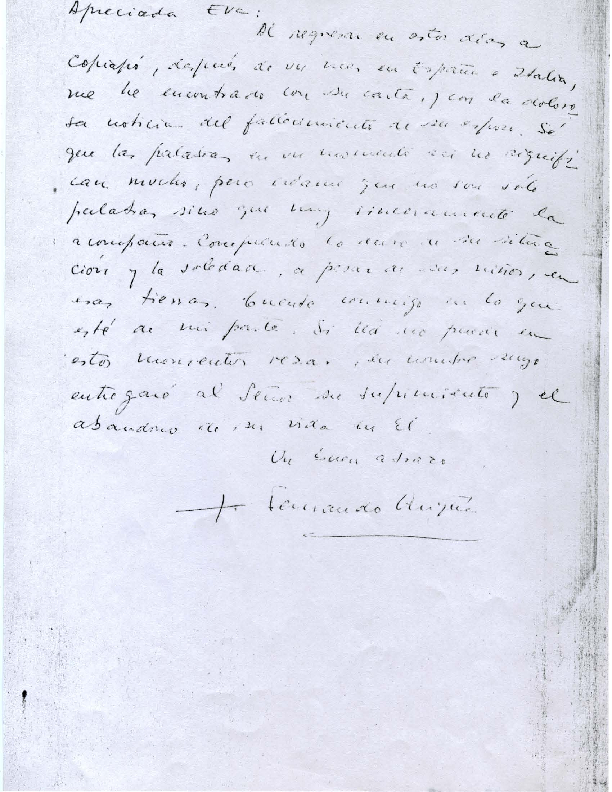 Apreciada Eva:
Al regresar en estos días a
Copiapó, después de un mes en España e Italia,
me he encontrado con su carta, y con la doloro
sa noticia del fallecimiento de su esposo. Sé
que las palabras en un momento así no signifi
can mucho, pero créame que no son sólo
palabras sino que muy sinceramente la
acompaño. Comprendo lo duro de su situa
ción y la soledad, a pesar de sus niños, en
esas tierras. Cuente conmigo en lo que
esté de mi parte. Si Ud no puede en
estos momentos rezar, en nombre suyo
entregaré al Señor su sufrimiento y el
abandono de su vida en El.
Un buen abrazo
+ Fernando